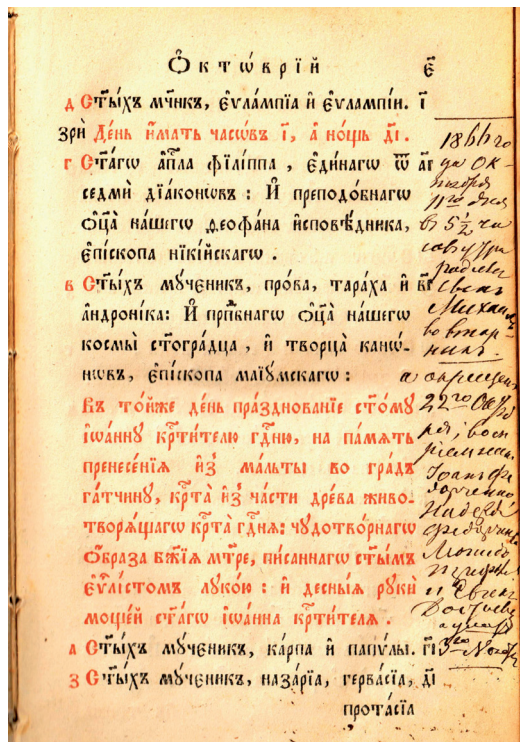 Ѻ҆ктѡ́врїй є҃
д С҃ты́хъ мч҃нкъ, є҆ѵла́мпїа и҆ є҆ѵла́мпїи. і҃
зрѝ Де́нь и҆́мать часѡ́въ і҃, а҆ но́щь д҃і.
г С҃та́гѡ а҆пⷭ҇ла фїлі́ппа, є҆ди́нагѡ ѿ а҃і
седмѝ дїа́конѡвъ: И҆ преподо́бнагѡ
ѻ҆ц҃а̀ на́шегѡ ѳеофа́на и҆сповѣ́дника,
є҆пі́скопа нїкі́йскагѡ.
в С҃ты́хъ мꙋ́ченикъ, про́ва, тара́ха и҆ в҃і
а҆ндроні́ка: И҆ прпⷣбнагѡ ѻ҆ц҃а̀ на́шегѡ
космы̀ ст҃огра́дца, и҆ творца̀ канѡ́-
нѡвъ, є҆пі́скопа маїꙋ́мскагѡ:
Въ то́йже де́нь пра́зднованїе ст҃о́мꙋ
і҆ѡа́ннꙋ крⷭ҇ти́телю гдⷭ҇ню, на па́мѧть
пренесе́нїѧ и҆з̾ ма́льты во гра́дъ
га́тчинꙋ, крⷭ҇та̀ и҆з̾ ча́сти дре́ва живо-
творѧ́щагѡ крⷭ҇та̀ гдⷭ҇нѧ: чꙋдотво́рнагѡ
ѻ҆́браза бж҃їѧ мт҃ре, пи́саннагѡ ст҃ы́мъ
є҆ѵⷢ҇лі́стомъ лꙋко́ю: и҆ десны́ѧ рꙋкѝ
моще́й ст҃а́гѡ і҆ѡа́нна крⷭ҇ти́телѧ.
а С҃ты́хъ мꙋ́ченикъ, ка́рпа и҆ папѵ́лы. г҃і
з С҃ты́хъ мꙋ́ченикъ, наза́рїа, герва́сїа, д҃і
прота́сїа
1866 го
да ок-
тября
11го дня
в 5 1/2 ча
сов утра
родился
сын
Михаилъ
во втор-
никъ.
а окрещен
22го Октяб
ря,